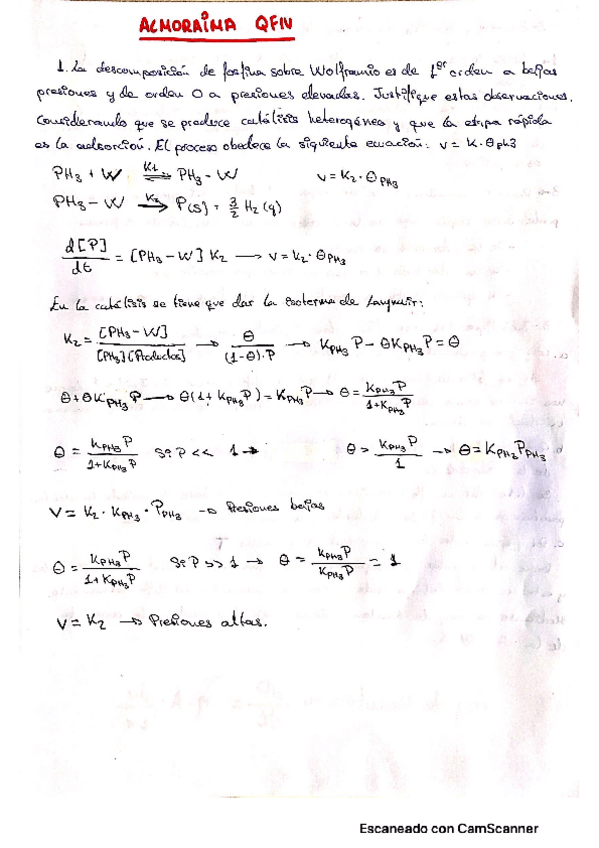 ALMORAIMA QFIV
1. La descomposición de fosfina sobre Wolframio es de 1er orden a bajas
presiones y de orden 0 a presiones elevadas. Justifique estas observaciones.
Considerando que se produce catálisis heterogénea y que la etapa rápida
es la adsorción. El proceso obedece la siguiente ecuación: v = K·θph3
PH₃ + W ⇌ K1 PH₃ - W v = K₂·θPH₃
PH₃ - W → K₂ P(s) + 3/2 H₂(g)
d[P]/dt = [PH₃-W] K₂ → v = K₂·θPH₃
En la catálisis se tiene que dar la isoterma de Langmuir:
K₂ = [PH₃-W]/[PH₃][Productos] → θ/(1-θ)·P → KPH₃P - θKPH₃P = θ
θ + θKPH₃P → θ(1+KPH₃P) = KPH₃P → θ = KPH₃P/1+KPH₃P
θ = KPH₃P/1+KPH₃P Si P << 1 → θ = KPH₃P/1 → θ = KPH₃PPH₃
V = K₂·KPH₃·PPH₃ → Presiones bajas
θ = KPH₃P/1+KPH₃P Si P >> 1 → θ = KPH₃P/KPH₃P = 1
V = K₂ → Presiones altas.
Escaneado con CamScanner